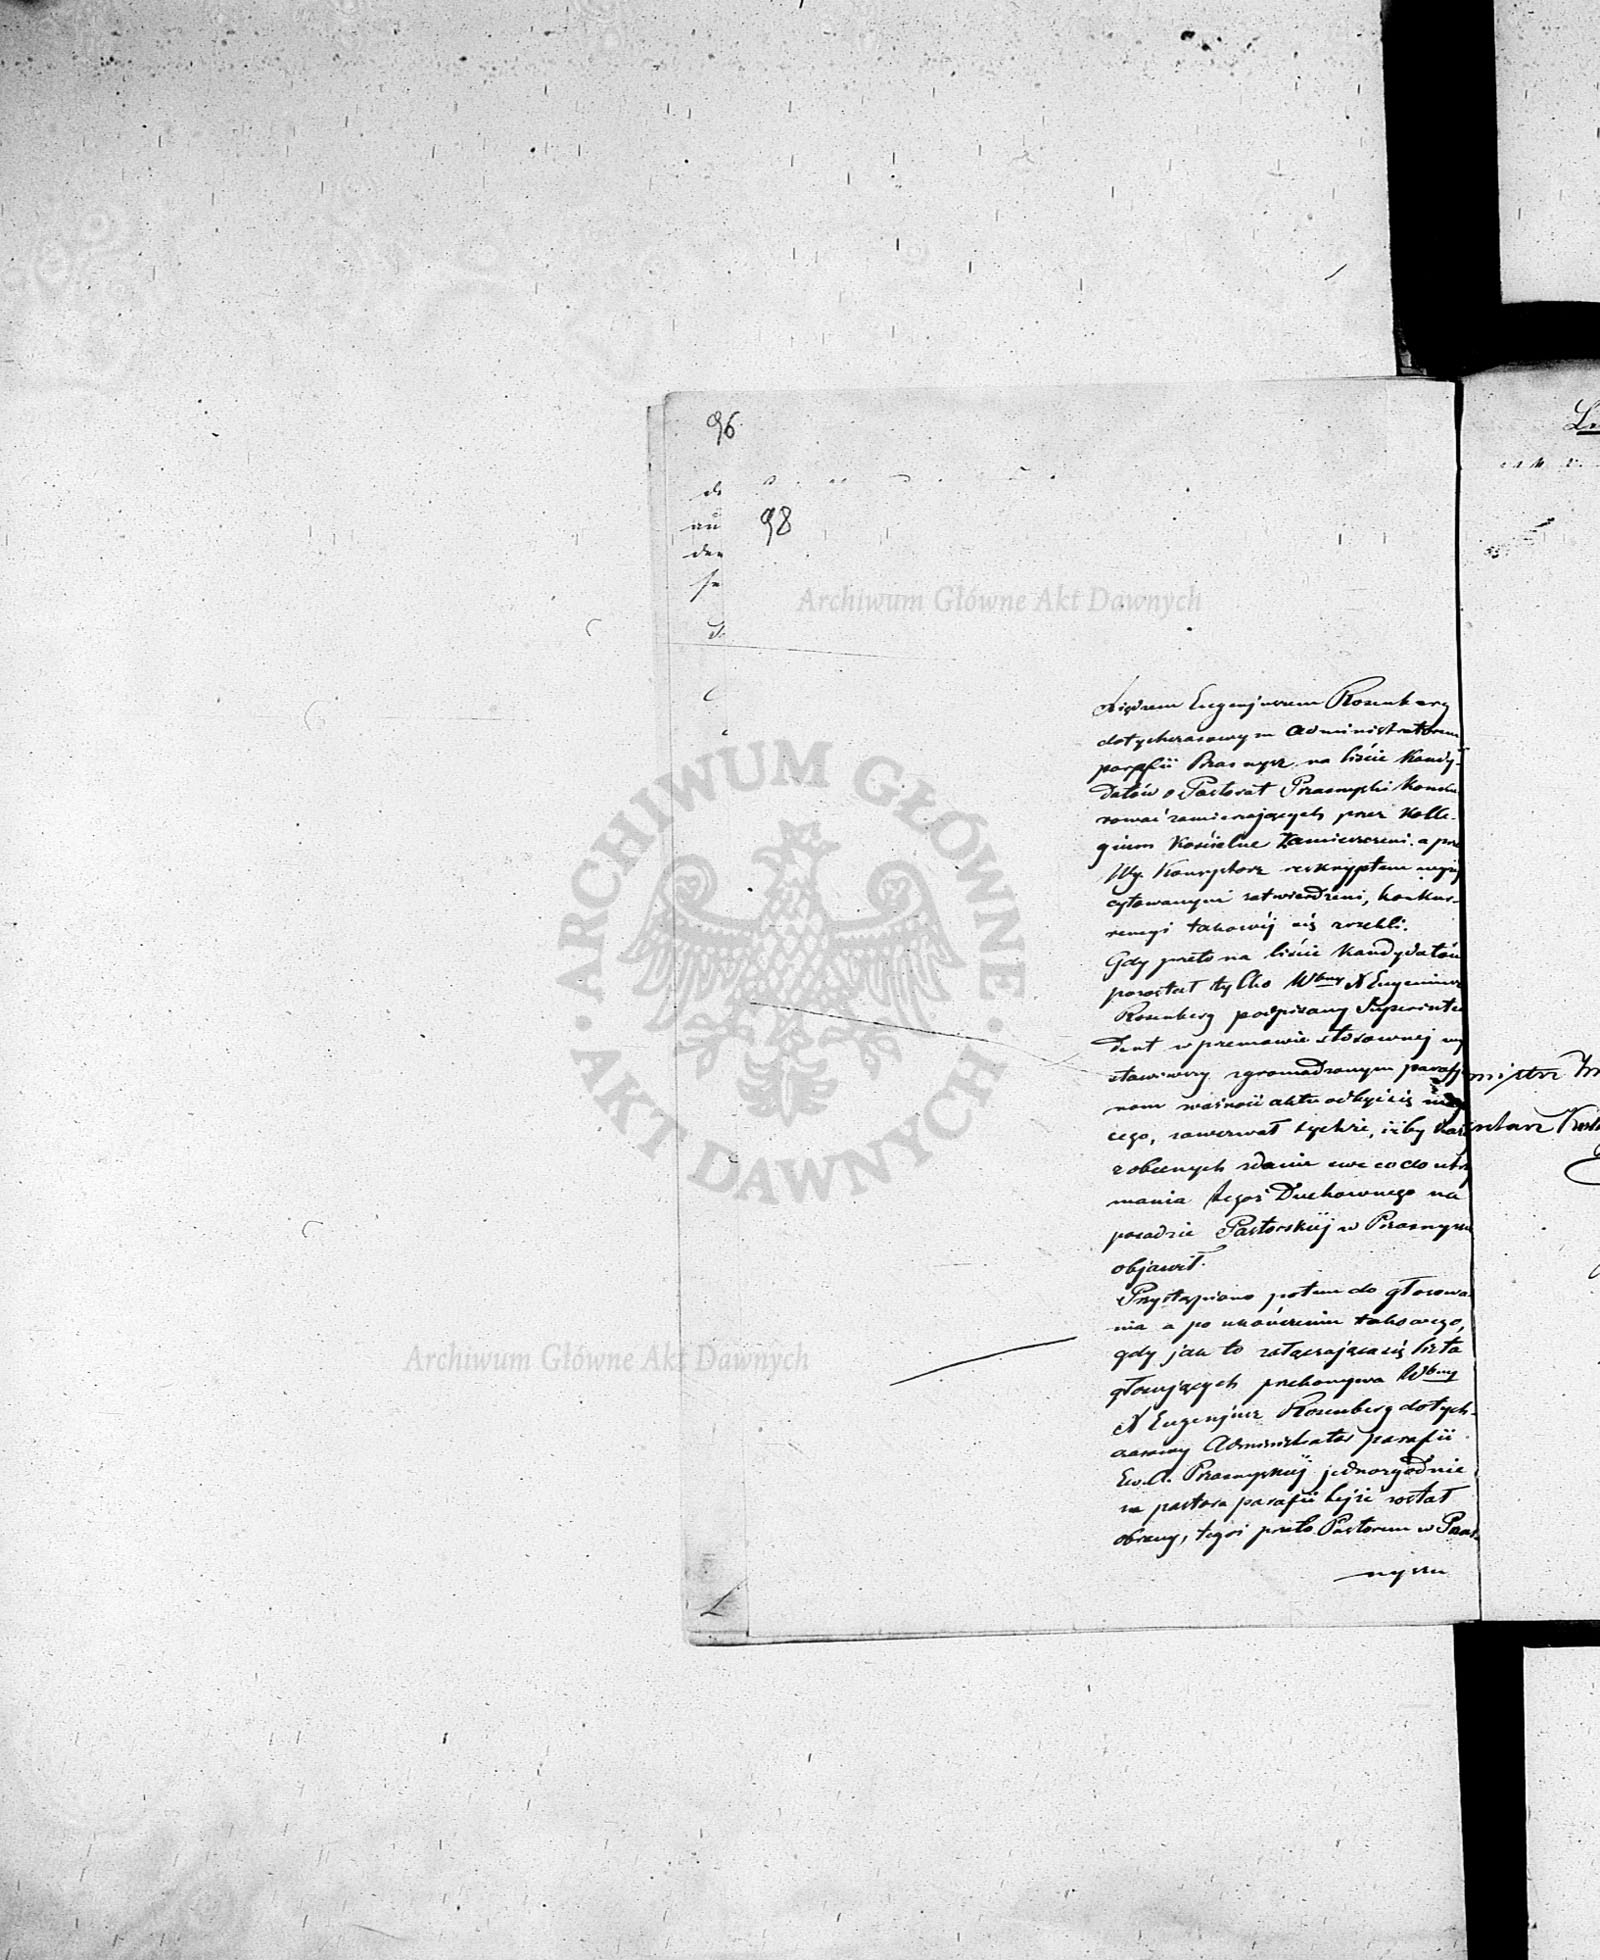 96
98
Księdzem Eugenjuszem Rosenberg
dotychczasowym Administratorem
parafii Przasnysz na liście Kandy-
datów o Pastorat Przasnyski Konku
rować zamierzających przez Kolle-
gium Kościelne zamieszczeni a prz
Wy. Konsystorz reskryptem wyżej
cytowanym zatwierdzeni, konkur-
rencyi takowéj się zrzekli.
Gdy przeto na liście Kandydatów
pozostał tylko Wbny X Eugeniusz
Rosenberg podpisany Superinten
dent w przemowie stosownej wy
stawiwszy zgromadzonym parafja
nom ważność aktu odbyć się maj
cego, zawezwał tychże, iżby każd
z obecnych zdanie swe co do utrzy
mania tegoż Duchownego na
posadzie Pastorskiéj w Przasnyszu
objawił.
Przystąpiono potem do głosowa
nia a po ukończeniu takowego,
gdy jak to załączająca się lista
głosujących przekonywa Wbny
X Eugenjusz Rosenberg dotych-
czasowy Administrator parafii
Ew. A. Przasnyskiéj jednozgodnie
na pastora parafii tejże został
obrany, tegoż przeto Pastorem w Przas-
nyszu